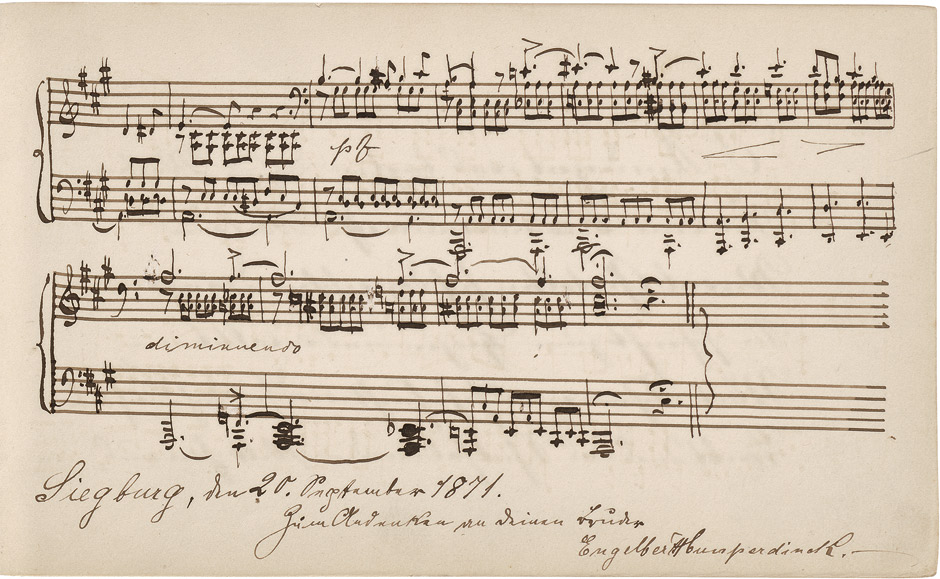 pf
diminuendo
Siegburg, den 20. September 1871.
Zum Andenken an deinen Bruder
Engelbert Humperdinck.